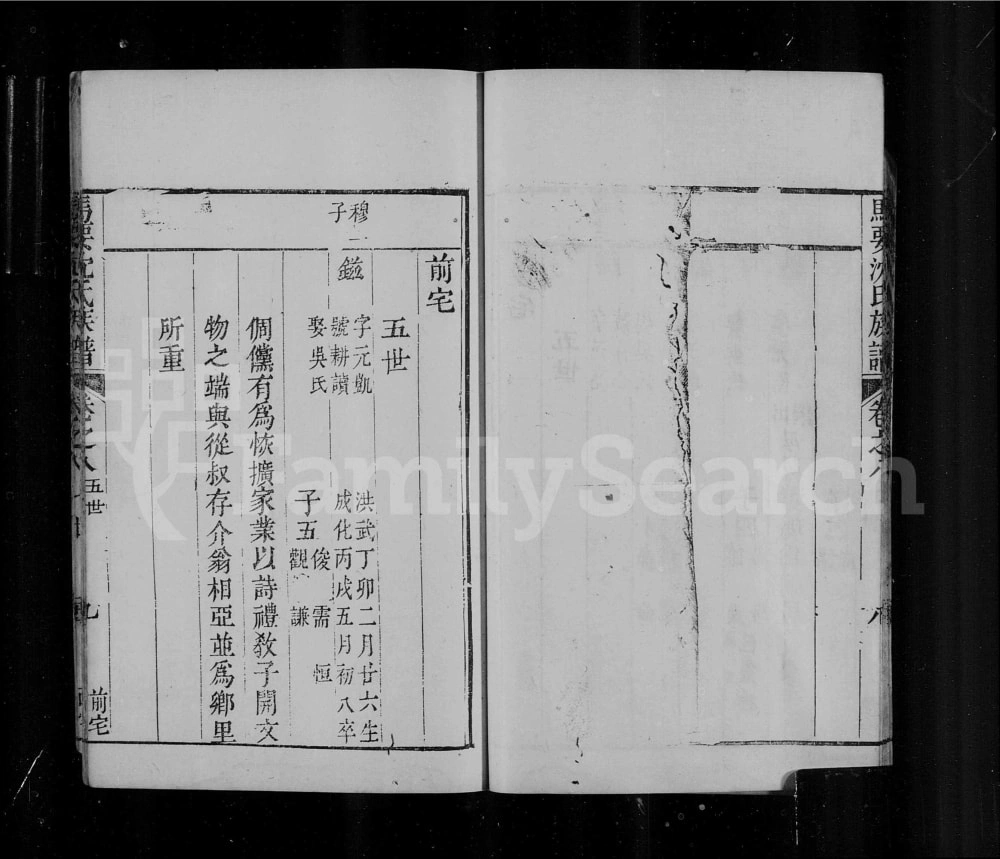 馬要沈氏族譜
卷之八
八
前宅
五世
穆一
子
鎰
字元凱
號耕讀
娶吳氏
洪武丁卯二月廿六生
成化丙戌五月初八卒
子五
俊 需 恒
觀 謙
倜儻有為恢擴家業以詩禮教子開文
物之端與從叔存介翁相亞並為鄉里
所重
馬要沈氏族譜
卷之八
五世
九
前宅
FamilySearch